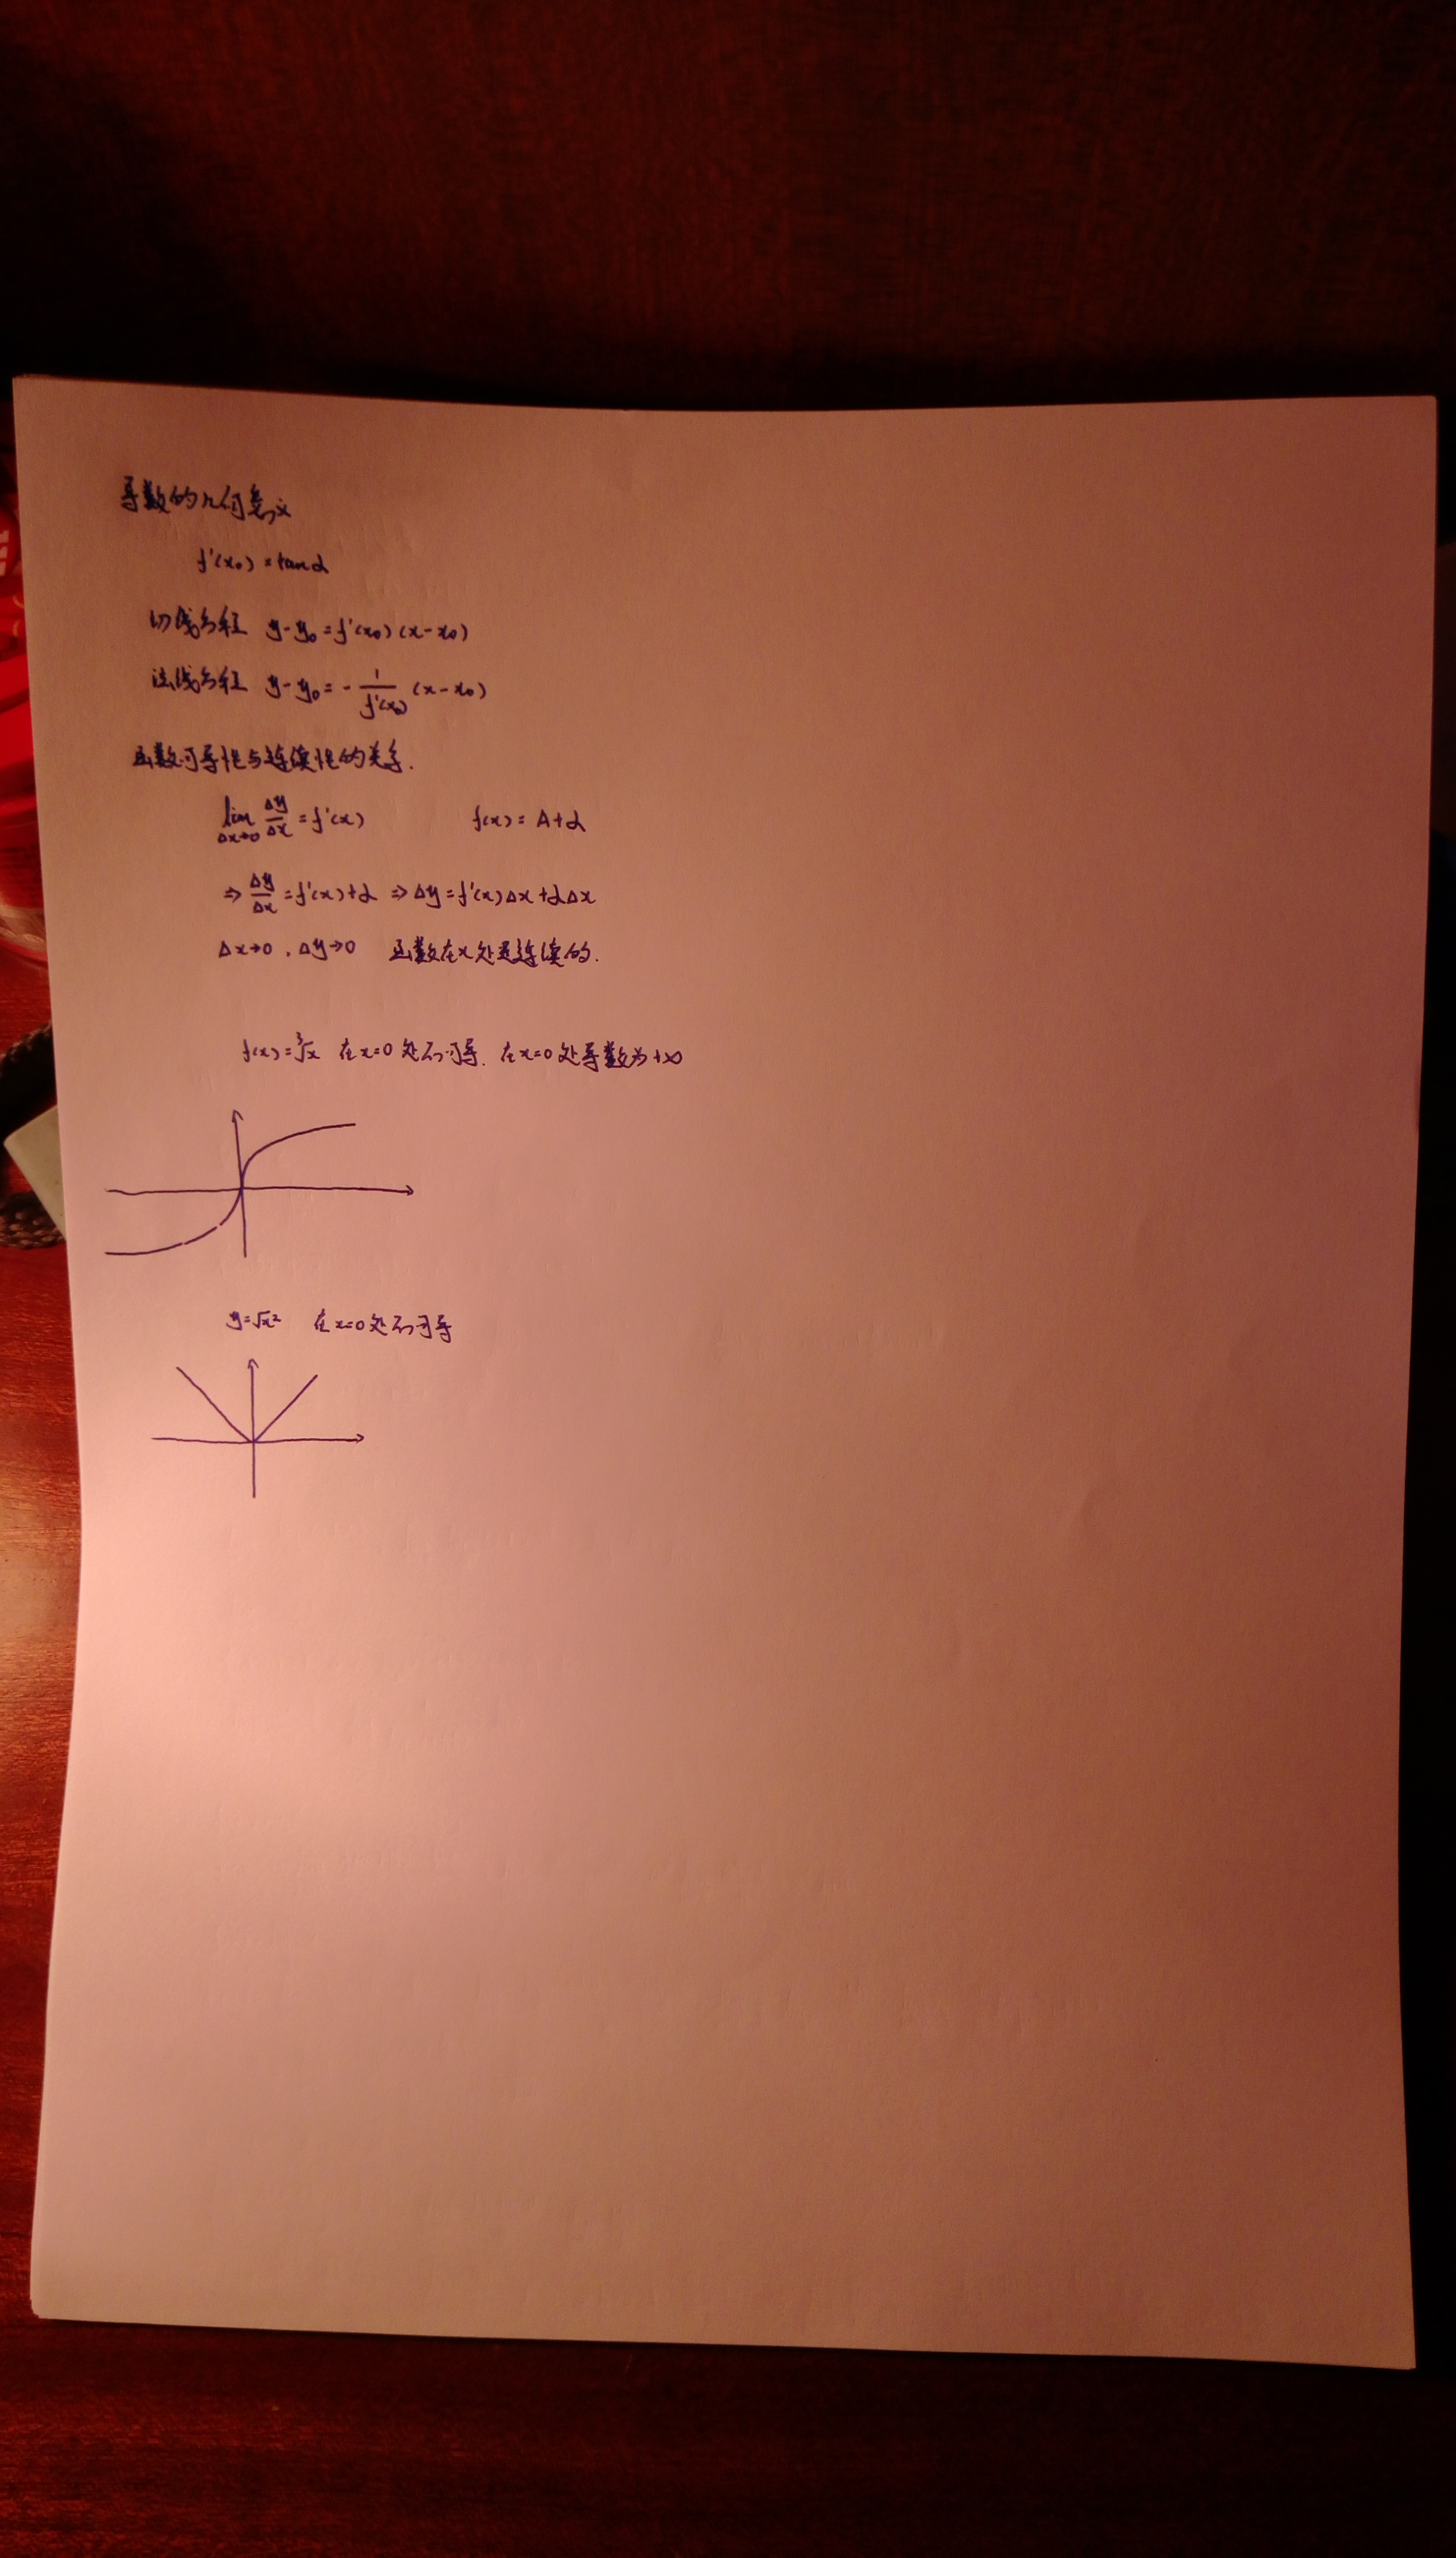 导数的几何意义
f'(x₀) = tanα
切线方程 y-y₀=f'(x₀)(x-x₀)
法线方程 y-y₀=-1/f'(x₀) (x-x₀)
函数可导性与连续性的关系.
lim Δx→0 Δy/Δx = f'(x) f(x) = A+α
⇒ Δy/Δx = f'(x)+α ⇒ Δy = f'(x)Δx+αΔx
Δx→0, Δy→0 函数在x处是连续的.
f(x)=∛x 在x=0处不可导. 在x=0处导数为+∞
y=√x² 在x=0处不可导